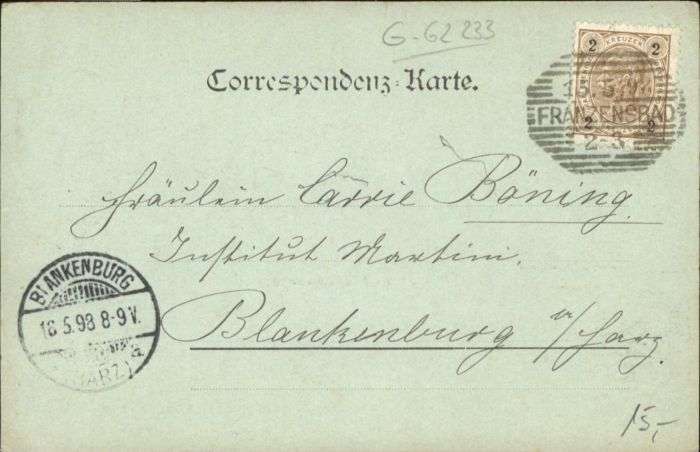 G-62 233
2 KREUZER 2
15.5
FRANZENSBAD
2 2
2-3
Correspondenz-Karte.
Fräulein Carrie Böning.
Institut Martini.
Blankenburg a/Harz.
BLANKENBURG
16.5.98 8-9V.
a
(HARZ)
15,-